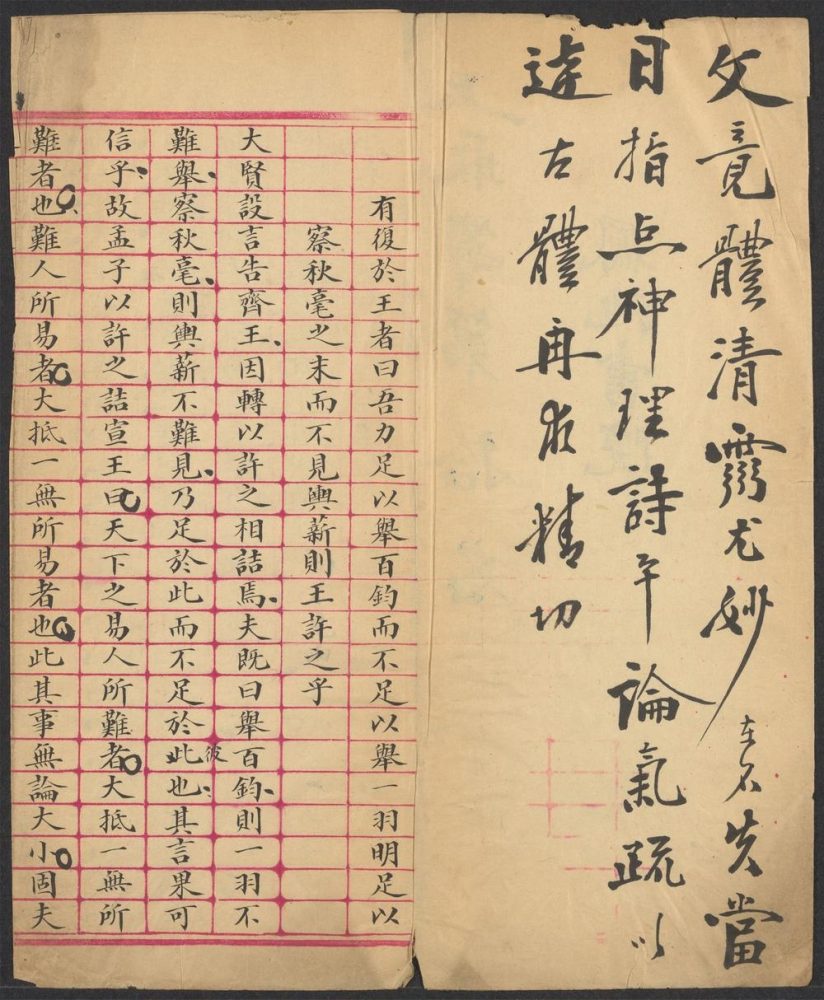 文竟體清靈尤妙在不失當
日指点神理詩平論氣疏以
達古體再求精切
有復於王者曰吾力足以舉百鈞而不足以舉一羽明足以
察秋毫之末而不見輿薪則王許之乎
大賢設言告齊王因轉以許之相詰焉夫既曰舉百鈞則一羽不
難舉察秋毫則輿薪不難見乃足於此而不足於此彼也其言果可
信乎故孟子以許之詰宣王曰天下之易人所難者大抵一無所
難者也難人所易者大抵一無所易者也此其事無論大小固夫